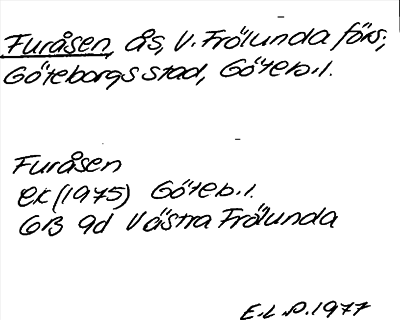 Furåsen, ås, V. Frölunda förs;
Göteborgs stad, Göteb.l.
Furåsen
ek (1975) Göteb.l.
GB 9d Västra Frölunda
E.L.P. 1977